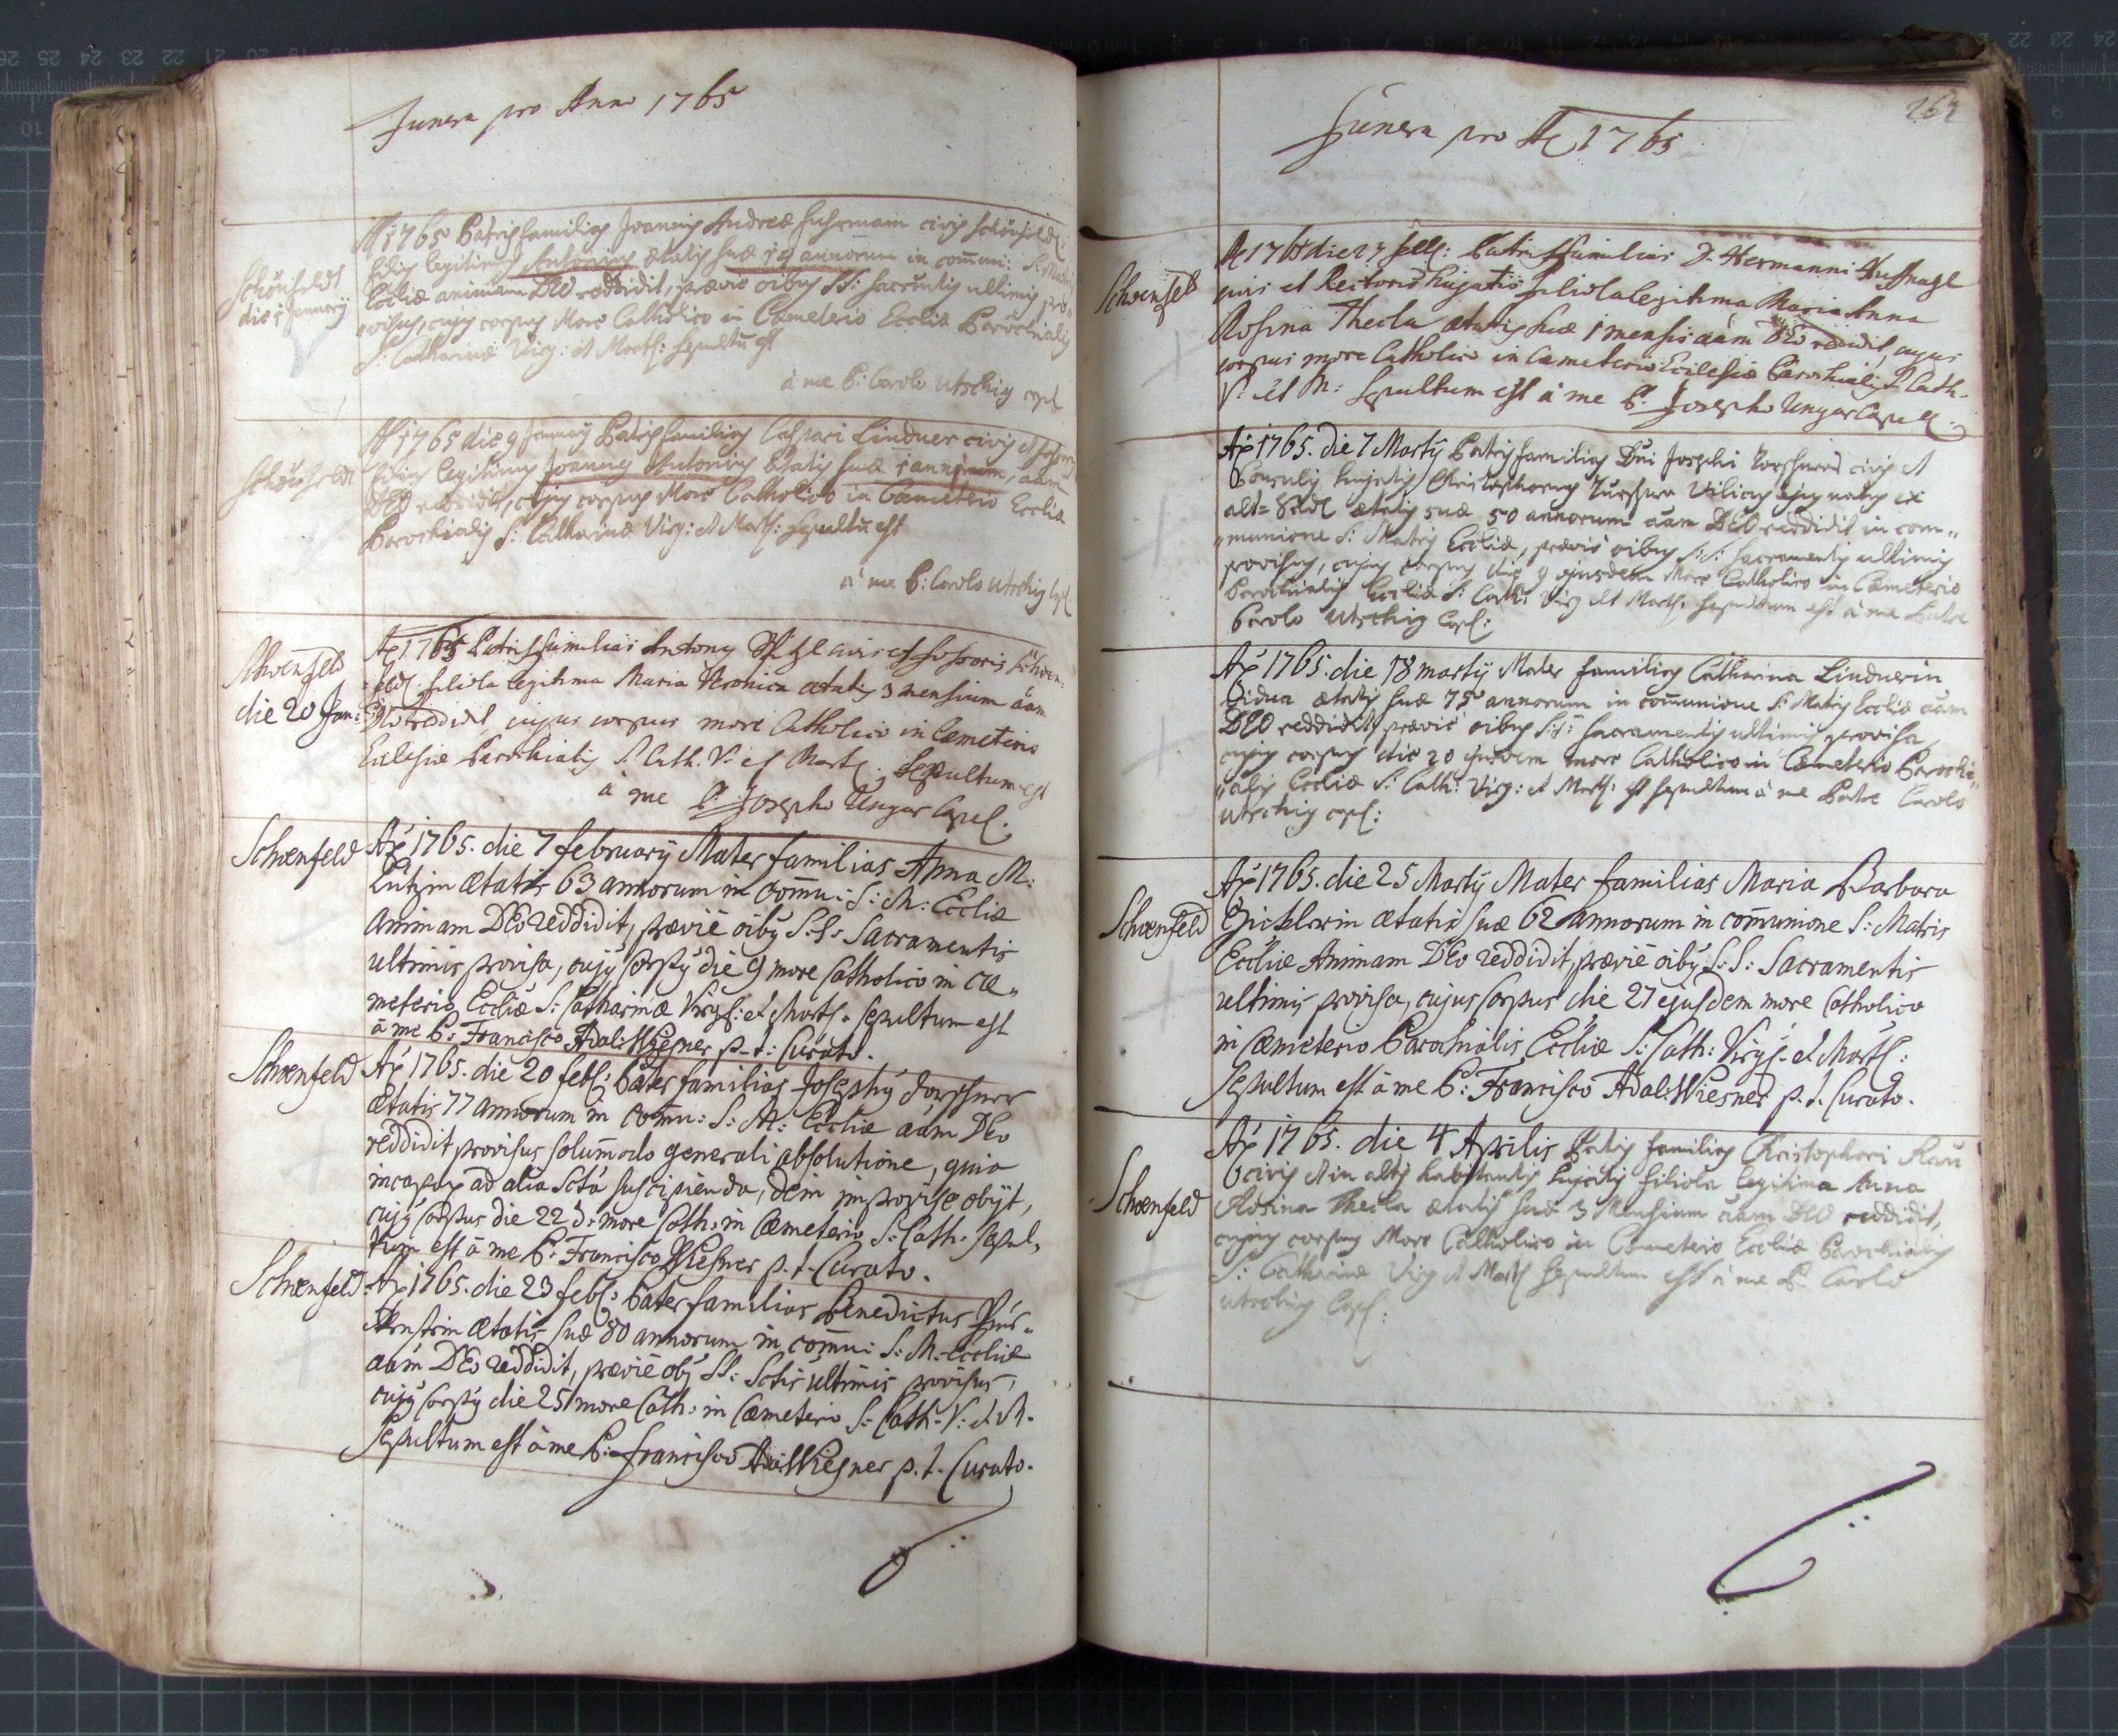 Funera pro Anno 1765
Schönfeldt
die 1 January
A 1765 Patris familias Joannis Andreæ Fuhrmann civis Schönfeld:
filius legitimus Antonius ætatis suæ 19 annorum in commu: S: Matris
Eccliæ animam DEO reddidit, prævie oibus SS: Sacrmtis ultimis pro-
visus, cujus corpus More Catholico in Cæmeterio Eccliæ Parochialis
S: Catharinæ Virg: et Mart: sepultu est
à me P: Carolo Utschig capl
Schönfeldt
A 1765 die 9 January Patris familias Caspari Lindner civis et
filius legitimus Joannes Antonius ætatis suæ 1 anni, aam
DEO reddidit, cujus corpus More Catholico in Cæmeterio Eccliæ
Parochialis S: Catharinæ Virg: et Mart: sepultu est
à me P: Carolo Utschig Capl
Schoenfeld
die 20 Jan:
Ao 1765 Patris familias Antony civis et fossoris Schoen-
feld: filiola legitima Maria Veronica ætatis 3 mensium aam
Deo reddidit, cujus corpus more Catholico in Cæmeterio
Eclesiæ Parochialis S. Cath. V. et Mart: Sepultum est
à me P. Josepho Ungar Capel.
Schœnfeld
Ao 1765. die 7 february Mater familias Anna M:
ætatis 63 annorum in Commu: S: M: Eccliæ
Animam DEo reddidit, prævie oibus S:S: Sacramentis
ultimis provisa, cujus Corpus die 9 more Catholico in cæ-
meterio Eccliæ S: Catharinæ Virg: et Mart: sepultum est
à me P: Francisco Adal: Wiesner p. t: Curato.
Schœnfeld
Ao 1765. die 20 feb: Pater familias Josephus
Ætatis 77 annorum in Commu: S: M: Eccliæ aam DEo
reddidit provisus solummodo generali absolutione, quia
incapax ad alia Scta suscipienda, dein improvise obyt,
cujus Corpus die 22 d: more Cath: in Cæmeterio S: Cath: sepul-
tum est à me P: Francisco Wiesner p. t. Curato.
Schœnfeld
Ao 1765. die 23 feb: Pater familias Benedictus
ætatis suæ 80 annorum in commu: S: M: Eccliæ
aam DEo reddidit, prævie SS: Sctis ultimis provisus,
cujus Corpus die 25 more Cath: in Cæmeterio S: Cath: V: et M:
Sepultum est à me P: Francisco Adal: Wiesner p. t. Curato.
264
Funera pro A 1765
Schoenfeld
Ao 1765 die 27 feb: Patris familias D. Hermanni Huffnagl
civis et Rectoris hujatis filiola legitima Maria Anna
Rosina Thecla ætatis suæ 1 mensis aam Deo reddidit, cujus
corpus more Catholico in Cæmeterio Eclesiæ Parochialis S. Cath.
V: et M: Sepultum est à me P. Josepho Ungar Capell.
Ao 1765. die 7 Marty Patris familias Dni Josephi civis et
Consulis hujatis Christophorus Villicus ejus natus ex
alt= ætatis suæ 50 annorum aam DEO reddidit in com-
munione S: Matris Eccliæ, prævie oibus S:S: Sacramentis ultimis
provisus, cujus corpus die 9 ejusdem More Catholico in Cæmeterio
Parochialis Eccliæ S: Cath: Virg et Mart: sepultum est à me Patre
Carolo Utschig Capl:
Ao 1765. die 18 marty Mater familias Catharina Lindnerin
Vidua ætatis suæ 75 annorum in communione S: Matris Eccliæ aam
DEO reddidit, prævie oibus S:S: Sacramentis ultimis provisa,
cujus corpus die 20 ejusdem more Catholico in Cæmeterio Parochi-
alis Eccliæ S: Cath: Virg: et Mart: est sepultum à me Patre Carolo
Utschig capl:
Schœnfeld
Ao 1765. die 25 Marty Mater familias Maria Barbara
ætatis suæ 62 annorum in communione S: Matris
Eccliæ Animam DEo reddidit, prævie oibus S:S: Sacramentis
ultimis provisa, cujus Corpus die 27 ejusdem more Catholico
in Cæmeterio Parochialis Eccliæ S: Cath: Virg: et Mart:
Sepultum est à me P: Francisco Adal: Wiesner p. t. Curato.
Schœnfeld
Ao 1765. die 4 Aprilis Patris familias Christophori
civis et in altis habitantis hujatis filiola legitima Anna
Rosina Thecla ætatis suæ 3 Mensium aam DEO reddidit,
cujus corpus More Catholico in Cæmeterio Eccliæ Parochialis
S: Catharinæ Virg et Mart sepultum est à me P: Carolo
Utschig Capl: